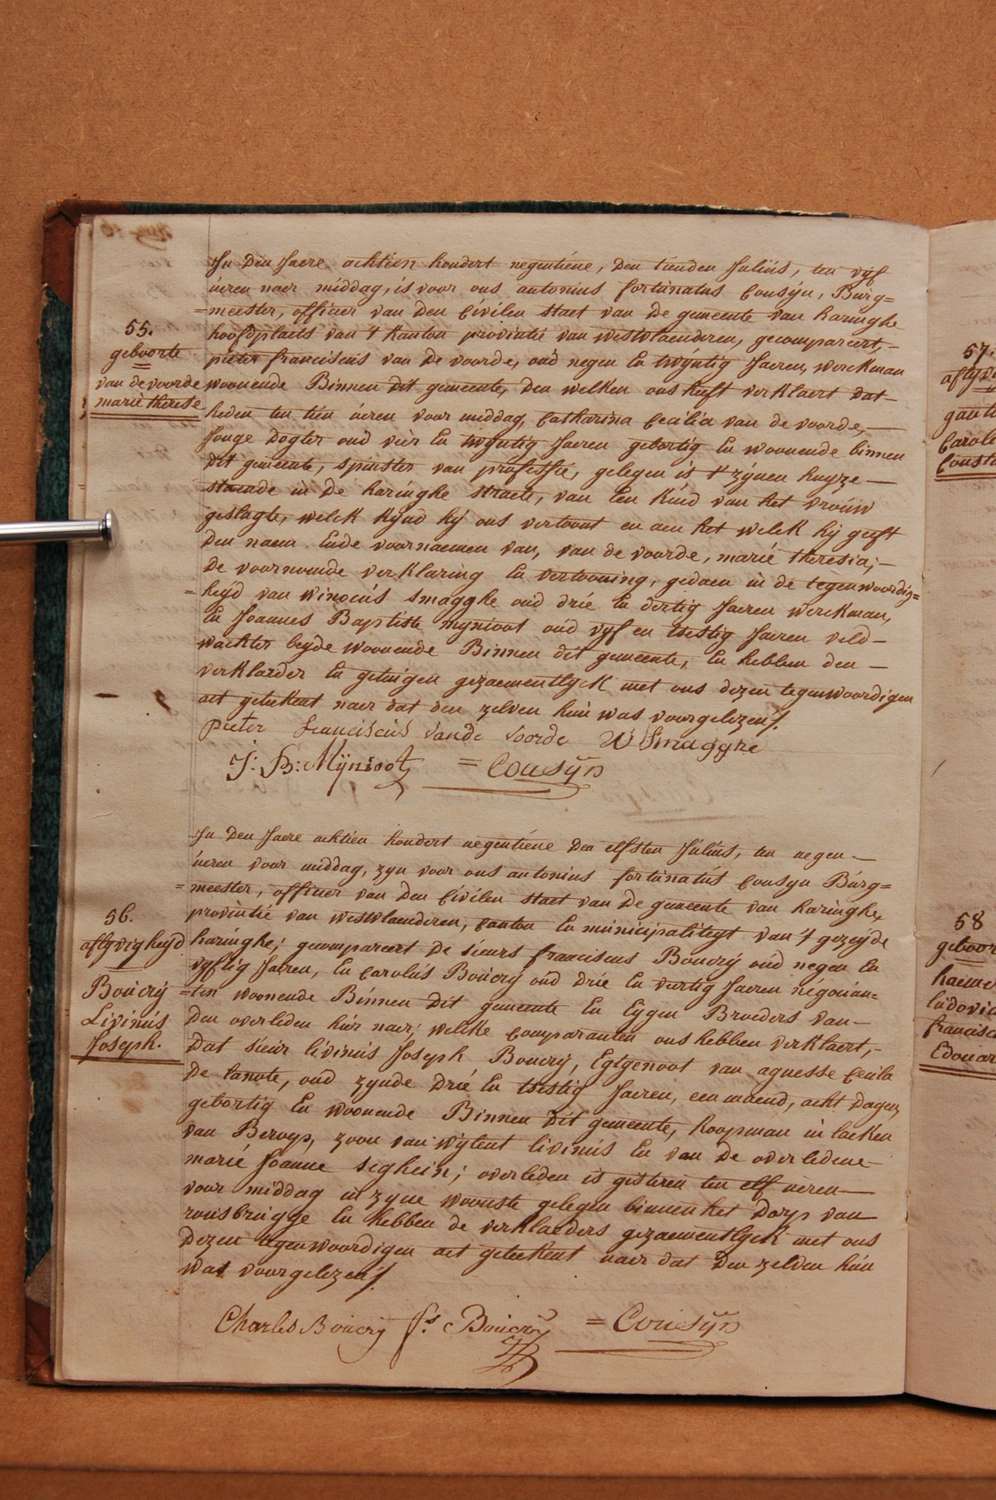 55.
geboorte
van de voorde
marie therese
In den Jaere achtien hondert negentiene, den tienden Julius, ten vyf
ueren naer middag, is voor ons antonius fortunatus Cousyn, Burg=
=meester, officier van den Civilen staet van de gemeente van haringhe
hoofdplaets van 't kanton provintie van westvlaenderen, gecompareert,-
pieter franciscus van de voorde, oud negen en twyntig Jaeren, werckman
woonende Binnen dit gemeente, den welken ons heeft verklaert dat-
heden ten tien ueren voor middag, Catharina Cecilia van de voorde,-
Jonge Dogter oud vier en twyntig Jaeren gebortig en woonende binnen
dit gemeente, spinster van professie, gelegen is t' zynen huyze-
staende in de haringhe straete, van een kind van het vrouw
geslagte, welck kynd hy ons vertoont en aen het welck hy geeft
den naem ende voornaemen van, van de voorde, marie theresia;-
de voornoemde verklaring en vertooning, gedaen in de tegenwoordig=
=heyd van winocus Smagghe oud drie en dertig Jaeren werckman,
en Joannes Baptiste mynioot oud vyf en tsestig Jaeren veld-
wachter beyde woonende Binnen dit gemeente, en hebben den-
verklaerder en getuigen gezaementlyck met ons dezen tegenwoordigen
act geteekent naer dat den zelven hun was voorgelezen/.
Pieter Franciscus Vande Voorde W Smagghe
J: B: Mynioot = Cousyn
56.
aflyvigheyd
Boucry
Livinus
Joseph.
In den Jaere achtien hondert negentiene den elfsten Julius, ten negen-
ueren voor middag, zyn voor ons antonius fortunatus Cousyn Burg=
=meester, officier van den Civilen staet van de gemeente van haringhe,
provintie van westvlaenderen, Canton en municipaliteyt van 't gezeyde
haringhe; gecompareert de sieurs franciscus Boucry oud negen en
vyftig Jaeren, en Carolus Boucry oud drie en vertig Jaeren négoçian=
=ten woonende Binnen dit gemeente en Eygen Broeders van-
den overleden hier naer; welke Comparanten ons hebben verklaert,-
dat sieur livinus Joseph Boucry, Egtgenoot van agnesse Cecile
de lanote, oud zynde drie en tsestig Jaeren, een maend, acht dagen,
gebortig en woonende Binnen dit gemeente, koopman in laeken
van Beroep, zoon van wylent livinus en van de overledene
marie Joanne seghein; overleden is gisteren ten elf ueren-
voor middag in zyne woonste gelegen binnen het Dorp van
rousbrugge en hebben de verklaerders gezaementlyck met ons
dezen tegenwoordigen act geteekent naer dat den zelven hun
was voorgelezen/.
Charles Boucry fs. Boucry = Cousyn
57.
58